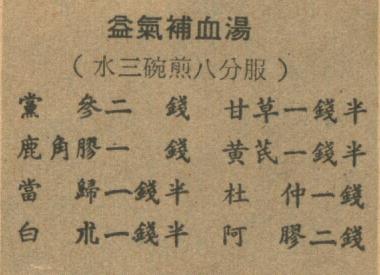 益氣補血湯
（水三碗煎八分服）
黨參二錢 甘草一錢半
鹿角膠一錢 黄芪一錢半
當歸一錢半 杜仲一錢
白朮一錢半 阿膠二錢